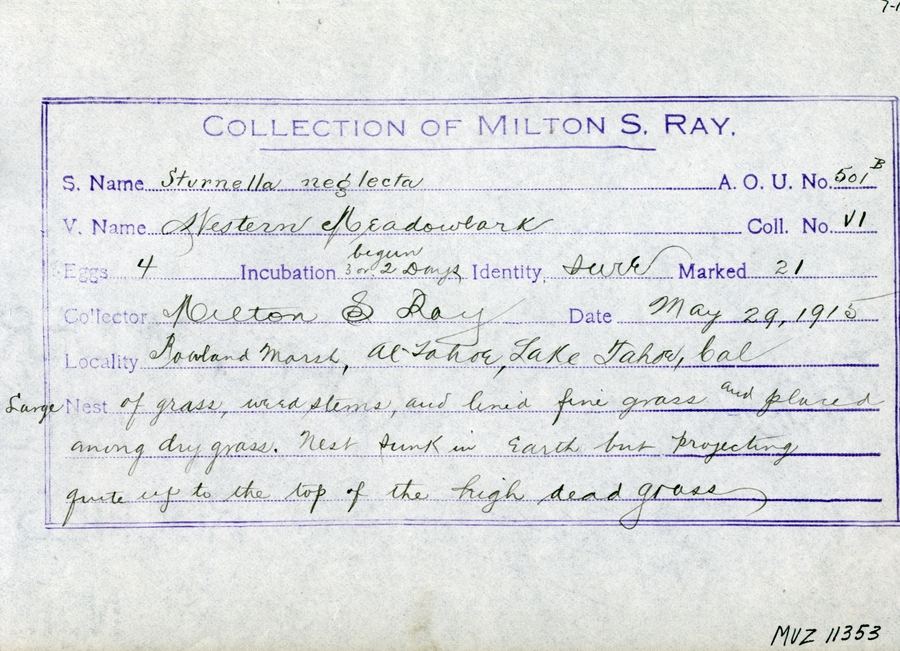 COLLECTION OF MILTON S. RAY.
S. Name Sturnella neglecta A. O. U. No. 501 B
V. Name Western Meadowlark Coll. No. VI
begun
Eggs 4 Incubation 3 or 2 Days Identity sure Marked 21
Collector Milton S Ray Date May 29, 1915
Locality Rowland Marsh, Al Tahoe, Lake Tahoe, Cal
Large Nest of grass, weed stems, and lined fine grass and placed
among dry grass. Nest sunk in Earth but projecting
quite up to the top of the high dead grass
MVZ 11353